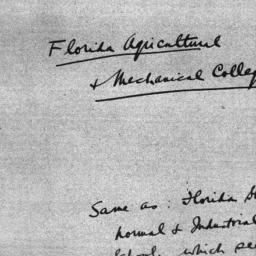 Florida Agricultural
& Mechanical Colleg
Same as: Florida St
normal & Industrial
School, which